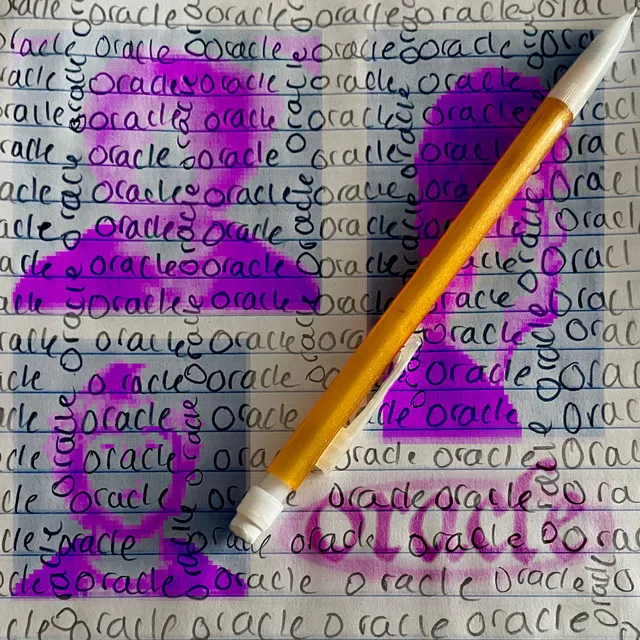 oracle oracle oracle oracle oracle oracle
oracle oracle oracle oracle oracle oracle
oracle oracle oracle oracle oracle
oracle oracle oracle oracle oracle
oracle oracle oracle oracle oracle
oracle oracle oracle oracle
oracle oracle oracle oracle
oracle oracle oracle oracle
oracle oracle oracle oracle
oracle oracle oracle oracle
oracle oracle oracle oracle
oracle oracle oracle
oracle oracle oracle
oracle oracle oracle
oracle oracle oracle oracle
oracle oracle oracle oracle
oracle oracle oracle oracle
oracle oracle oracle oracle oracle
oracle oracle oracle oracle oracle
oracle
oracle
oracle
oracle
oracle
oracle
oracle
oracle